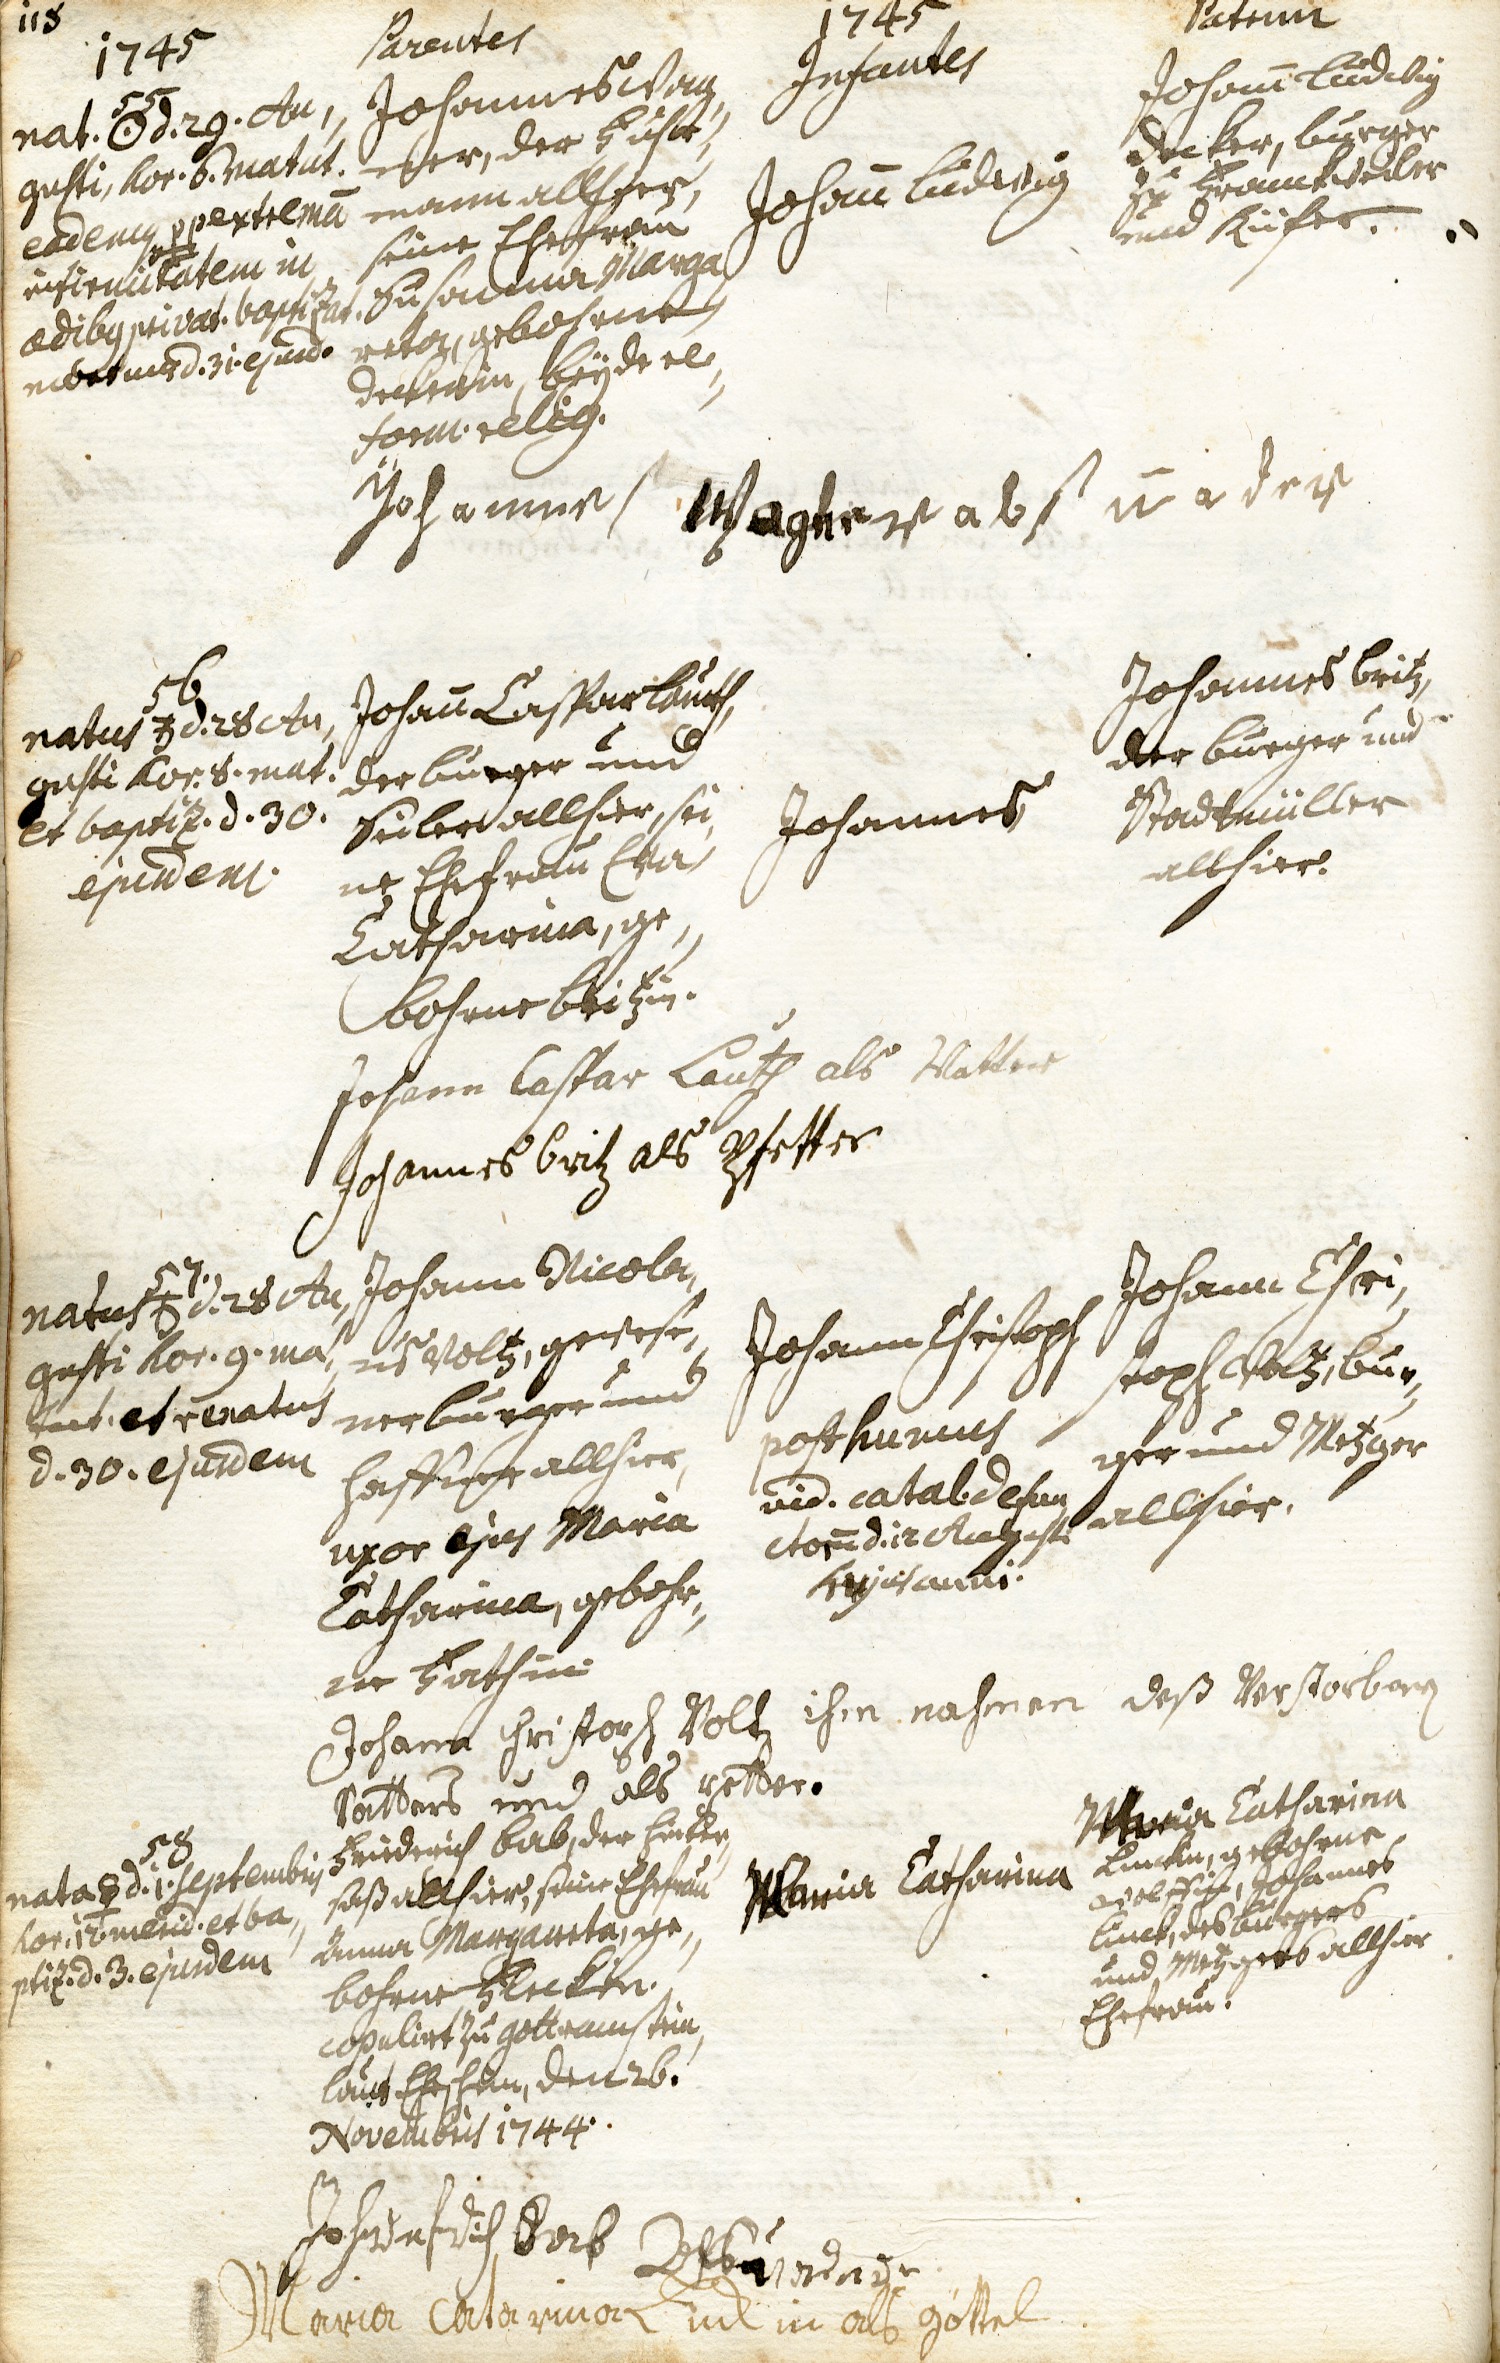 118
1745
Parentes
1745
Infantes
Patrini
55
nat. ☉ d. 29. Au,,
gusti, hor. 6. matut.
eadem
infirmitatem in
ædibg privat. baptizat.
d. 31. ejusd.
Johannes Wag,,
ner, der
mann allhier,
seine Ehefrau
Susanna Marga
reta, gebohrne
deckerin, beyde re,,
form. relig.
Johann Ludwig
Johann Ludwig
decker, burger
zu
und Küfer.
Johannes Wagner als
56
natus ♄ d. 28 Au,,
gusti hor. 8. mat.
et baptiz. d. 30.
ejusdem.
Johann Caspar Lauth,
der burger und
Seiler allhier, sei,,
ne Ehefrau Eva
Catharina, ge,,
bohrne britzin.
Johannes
Johannes britz,
der burger und
Stadtmüller
allhier.
Johann Caspar Lauth als Vatter
Johannes britz als Pfetter
57.
natus ♄ d. 28 Au,,
gusti hor. 9. ma,,
tut. et renatus
d. 30. ejusdem
Johann Nicola,,
us Voltz, gewese,,
ner burger und
Haffner allhier,
uxor ejus Maria
Catharina, gebohr,,
ne
Johann Christoph
posthumus
vid. catal. defun
ctorum d. 12 Augusti
hujus anni.
Johann Chri,,
stoph Voltz, bur,,
ger und Metzger
allhier.
Johann Christoph Voltz ihm nahmen deß Verstorbenen
Vatters und als petter.
58
nata ☿ d. 1. Septembris
hor. 12. merid. et ba,,
ptiz. d. 3. ejusdem
Friederich bab, der hinter,,
saß allhier, seine Ehefrau
Anna Margareta, ge,,
bohrne
copulirt zu gottramstein,
laut Ehschein, den 26.
Novembris 1744.
Maria Catharina
Maria Catharina
Linckin, gebohrne
Johannes
Linck, des burgers
und Metzgers allhier
Ehefrau.
Maria Catarina Linckin als göttel